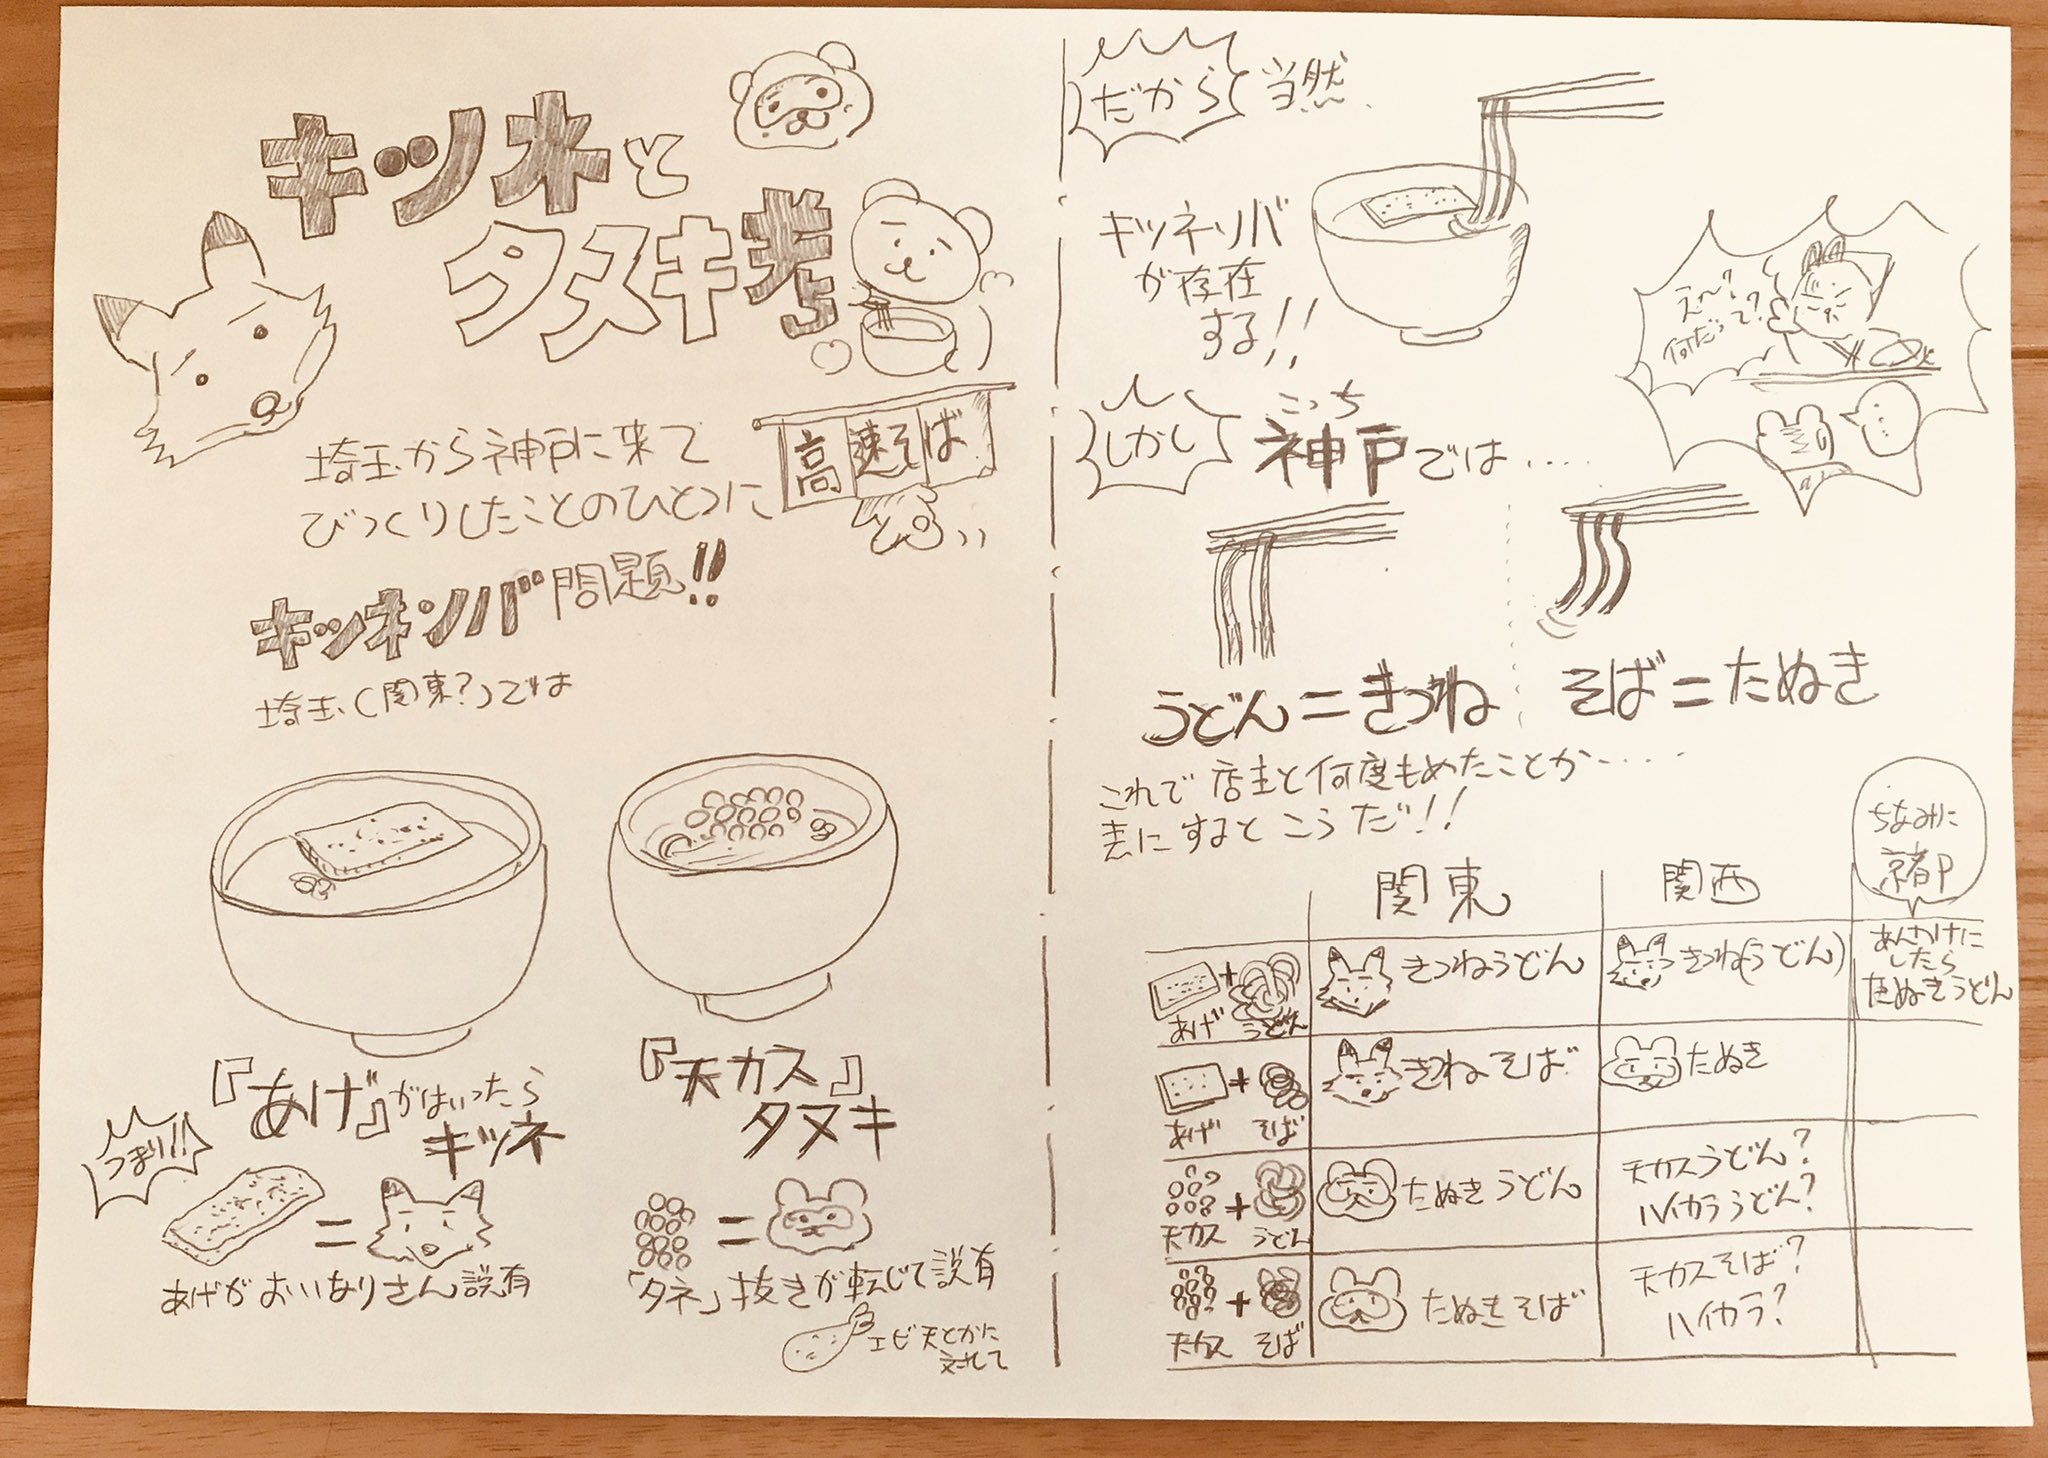 キツネと
タヌキ考
埼玉から神戸に来て
びっくりしたことのひとつに
高速そば
キツネソバ問題!!
埼玉(関東?)では
『あげ』がはいったら
キツネ
『天カス』
タヌキ
つまり!!
=
=
あげがおいなりさん説有
「タネ」抜きが転じて説有
エビ天とかに
対して
だからと当然
キツネソバ
が存在
する!!
えっ?
何だって?
しかし
こっち
神戸では....
うどん=きつね
そば=たぬき
これで店主と何度もめたことか......
表にするとこうだ!!
ちなみに
京都P
関東
関西
+
あげ うどん
きつねうどん
きつね(うどん)
あんかけに
したら
たぬきうどん
+
あげ そば
きつねそば
たぬき
+
天カス うどん
たぬきうどん
天カスうどん?
ハイカラうどん?
+
天カス そば
たぬきそば
天カスそば?
ハイカラ?